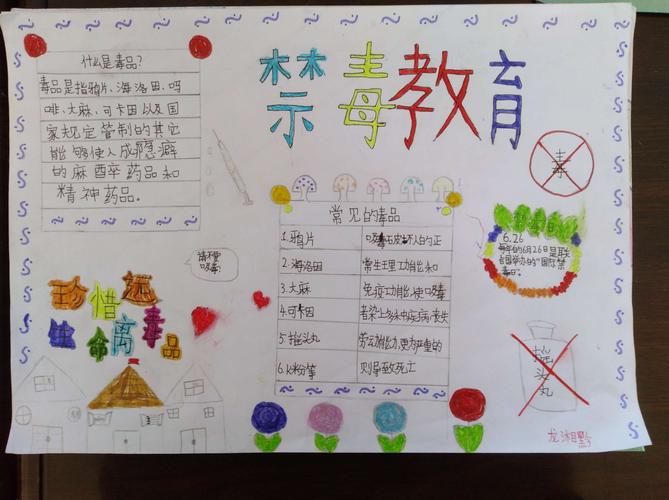 禁毒教育
什么是毒品?
毒品是指鸦片、海洛因、吗
啡、大麻、可卡因以及国
家规定管制的其它
能够使人成隐癖
的麻醉药品和
精神药品。
毒
常见的毒品
1.鸦片
2.海洛因
3.大麻
4.可卡因
5.摇头丸
6.K粉等
吸毒破坏人的正
常生理功能和
免疫功能使吸毒
者染上多种疾病丧失
劳动能力更为严重的
则导致死亡
6.26
每年的6月26日是联
合国举办的“国际禁
毒日。
请不要
吸毒!
珍惜远
生命离毒品
摇
头
丸
龙湘黔